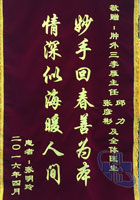 敬赠：肿外三李雁主任 邱力
张彦彬 及全体医生
妙手回春善为本
情深似海暖人间
患者：张明玲
二〇一六年四月